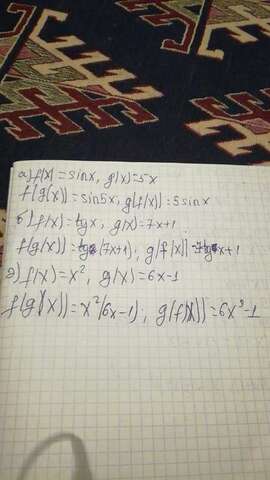 а) f(x) = sinx, g(x) = 5x
f(g(x)) = sin5x, g(f(x)) = 5sinx
б) f(x) = lgx, g(x) = 7x+1
f(g(x)) = lg(7x+1), g(f(x)) = 7lgx+1
f(x) = x², g(x) = 6x-1
f(g(x)) = x²(6x-1); g(f(x)) = 6x³-1